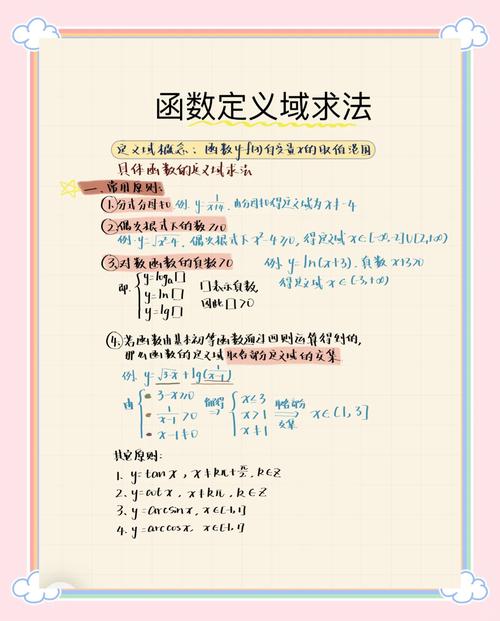 函数定义域求法
定义域概念:函数y=f(x)自变量x的取值范围
具体函数的定义域求法
一.常用原则:
①.分式分母≠0 例.y=1/(x+4).由分母≠0得定义域为x≠-4
②.偶次根式下的数≥0
例.y=√(x²-4).偶次根式下x²-4≥0,得定义域x∈[-∞,-2]∪[2,+∞)
③.对数函数的真数>0 例.y=ln(x+3).真数x+3>0
得定义域x∈(-3,+∞)
即 { y=logₐ□
y=ln□
y=lg□
□表示真数,
因此□>0
④.若函数由基本初等函数通过四则运算得到的,
那么函数的定义域取各部分定义域的交集
例.y=√(3-x)+lg(1/(x-1))
由 { 3-x≥0
1/(x-1)>0
x-1≠0
解得⇒ { x≤3
x>1
x≠1
取各部分⇒交集 x∈(1,3]
其它原则:
1. y=tanx,x≠kπ+π/2,k∈Z
2. y=cotx,x≠kπ,k∈Z
3. y=arcsinx,x∈[-1,1]
4. y=arccosx,x∈[-1,1]